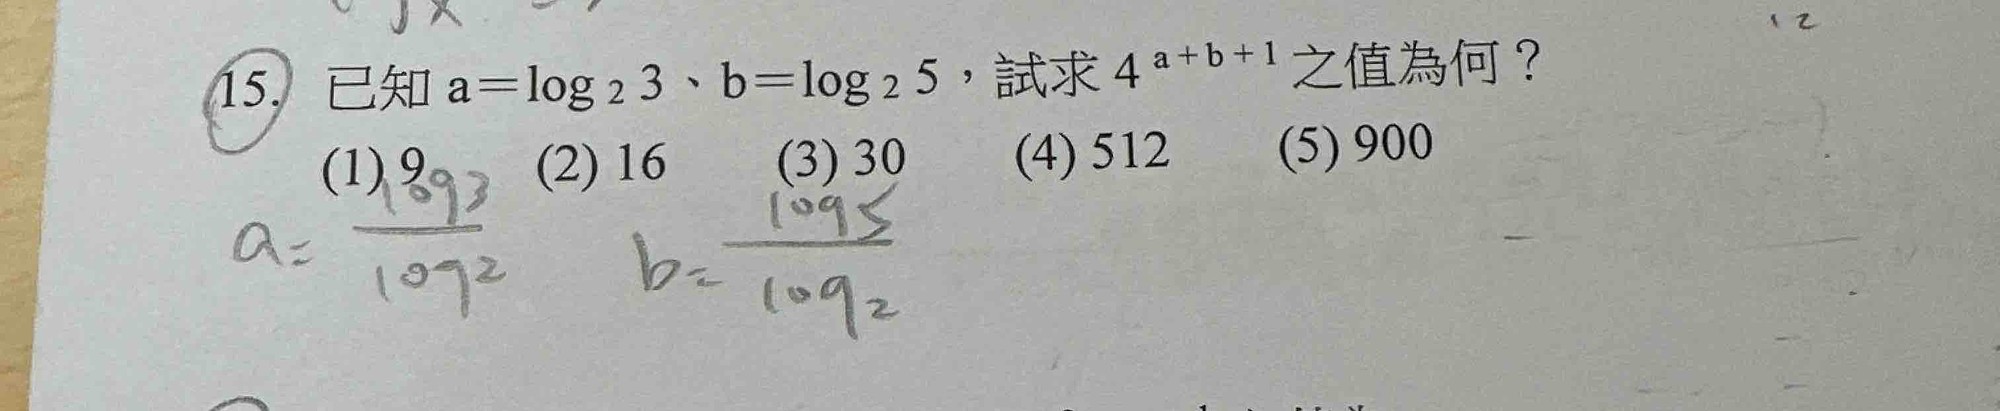 12
15. 已知 a=log ₂ 3、b=log ₂ 5,試求 4 ᵃ⁺ᵇ⁺¹ 之值為何?
(1) 9 (2) 16 (3) 30 (4) 512 (5) 900
a= log3/log2 b= log5/log2